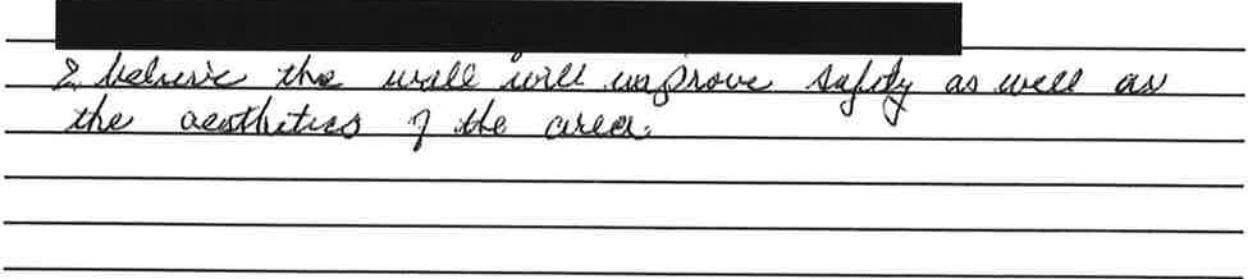 I believe the wall will improve safety as well as
the aesthetics of the area.